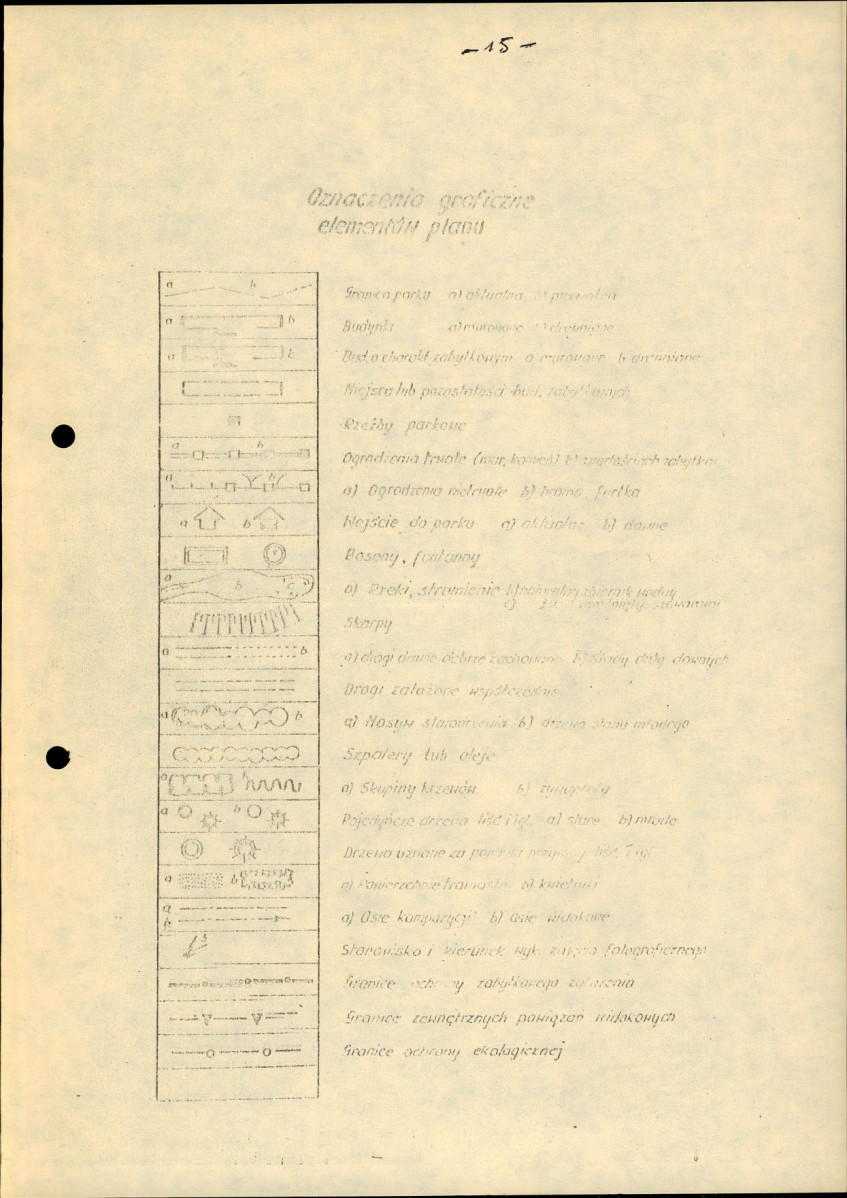 - 15 -
Oznaczenia graficzne
elementów planu
a b Granica parku a) aktualna b) pierwotna
a b Budynki a) murowane b) drewniane
a b Bud. o charakt. zabytkowym a) murowane b) drewniane
Miejsca lub pozostałości bud. zabytkowych
Rzeźby parkowe
a b Ogrodzenia trwałe (mur, kamień) b)
a) Ogrodzenia nietrwałe b) brama, furtka
a b Wejście do parku a) aktualne b) dawne
Baseny, fontanny
a b a) Rzeki, strumienie b) naturalny zbiornik wodny
c)
Skarpy
a b a) drogi dawne dobrze zachowane b) ślady dróg dawnych
Drogi założone współcześnie
a b a) Masyw starodrzewia b) drzewa stanu młodego
Szpalery lub aleje
a b a) Skupiny krzewów b) żywopłoty
a b Pojedyńcze drzewa liść. i igl. a) stare b) młode
Drzewa uznane za pomniki przyrody liść. i igl.
a b a) Powierzchnie trawiaste b) kwietniki
a b a) Osie kompozycji b) osie widokowe
5 Stanowisko i kierunek wyk. zdjęcia fotograficznego
Granice ochrony zabytkowego założenia
Granice zewnętrznych powiązań widokowych
Granice ochrony ekologicznej